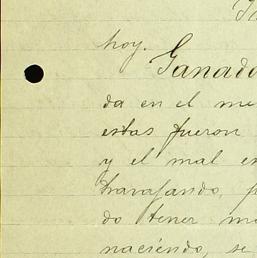 hoy.
Ganado
da en el me
estas fueron
y el mal en
travajando, p
do tener mu
naciendo, se